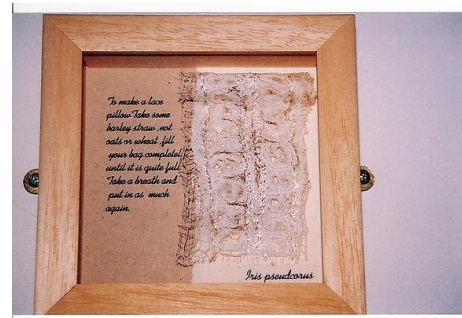 To make a lace
pillow Take some
barley straw ,not
oats or wheat ,fill
your bag completel
until it is quite full
Take a breath and
put in as much
again.
Iris pseudcorus